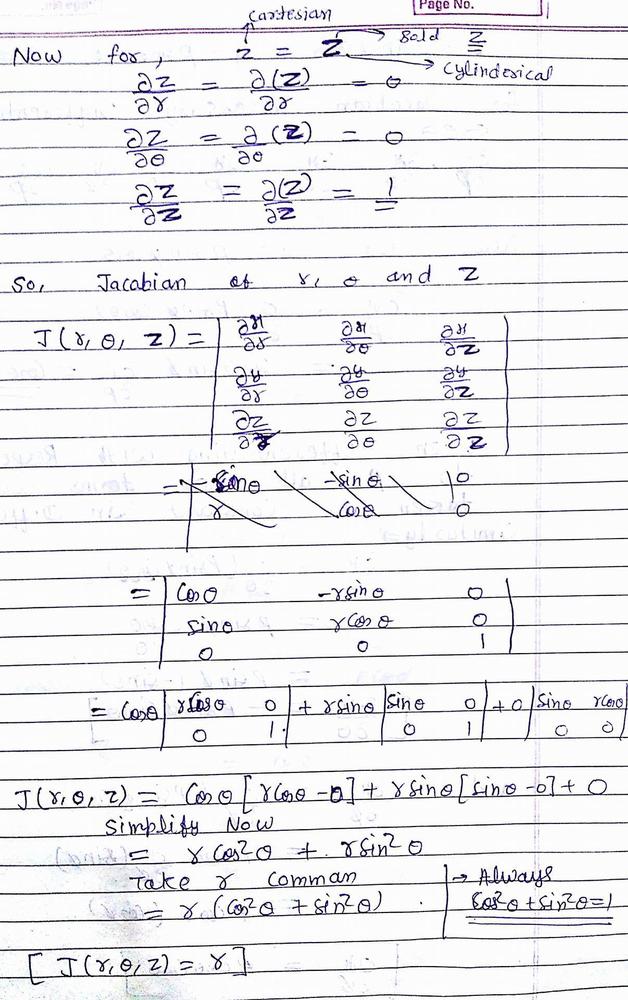 Page No.
Cartesian
Now for, z = Z Bold Z
Cylinderical
∂z/∂r = ∂(Z)/∂r = 0
∂z/∂θ = ∂(Z)/∂θ = 0
∂z/∂Z = ∂(Z)/∂Z = 1
So, Jacabian of r, θ and Z
J(r, θ, Z) = | ∂x/∂r ∂x/∂θ ∂x/∂Z |
| ∂y/∂r ∂y/∂θ ∂y/∂Z |
| ∂z/∂r ∂z/∂θ ∂z/∂Z |
= | sinθ -sinθ 0
| r cosθ 0
= | Cosθ -rsinθ 0 |
| sinθ rcosθ 0 |
| 0 0 1 |
= Cosθ | rCosθ 0 | + rsinθ | sinθ 0 | + 0 | sinθ rcosθ |
| 0 1 | | 0 1 | | 0 0 |
J(r, θ, z) = Cosθ [rcosθ - 0] + rsinθ [sinθ - 0] + 0
Simplify Now
= r cos²θ + rsin²θ
Take r comman → Always
= r (Cos²θ + sin²θ) Cos²θ + sin²θ = 1
[ J(r, θ, z) = r ]